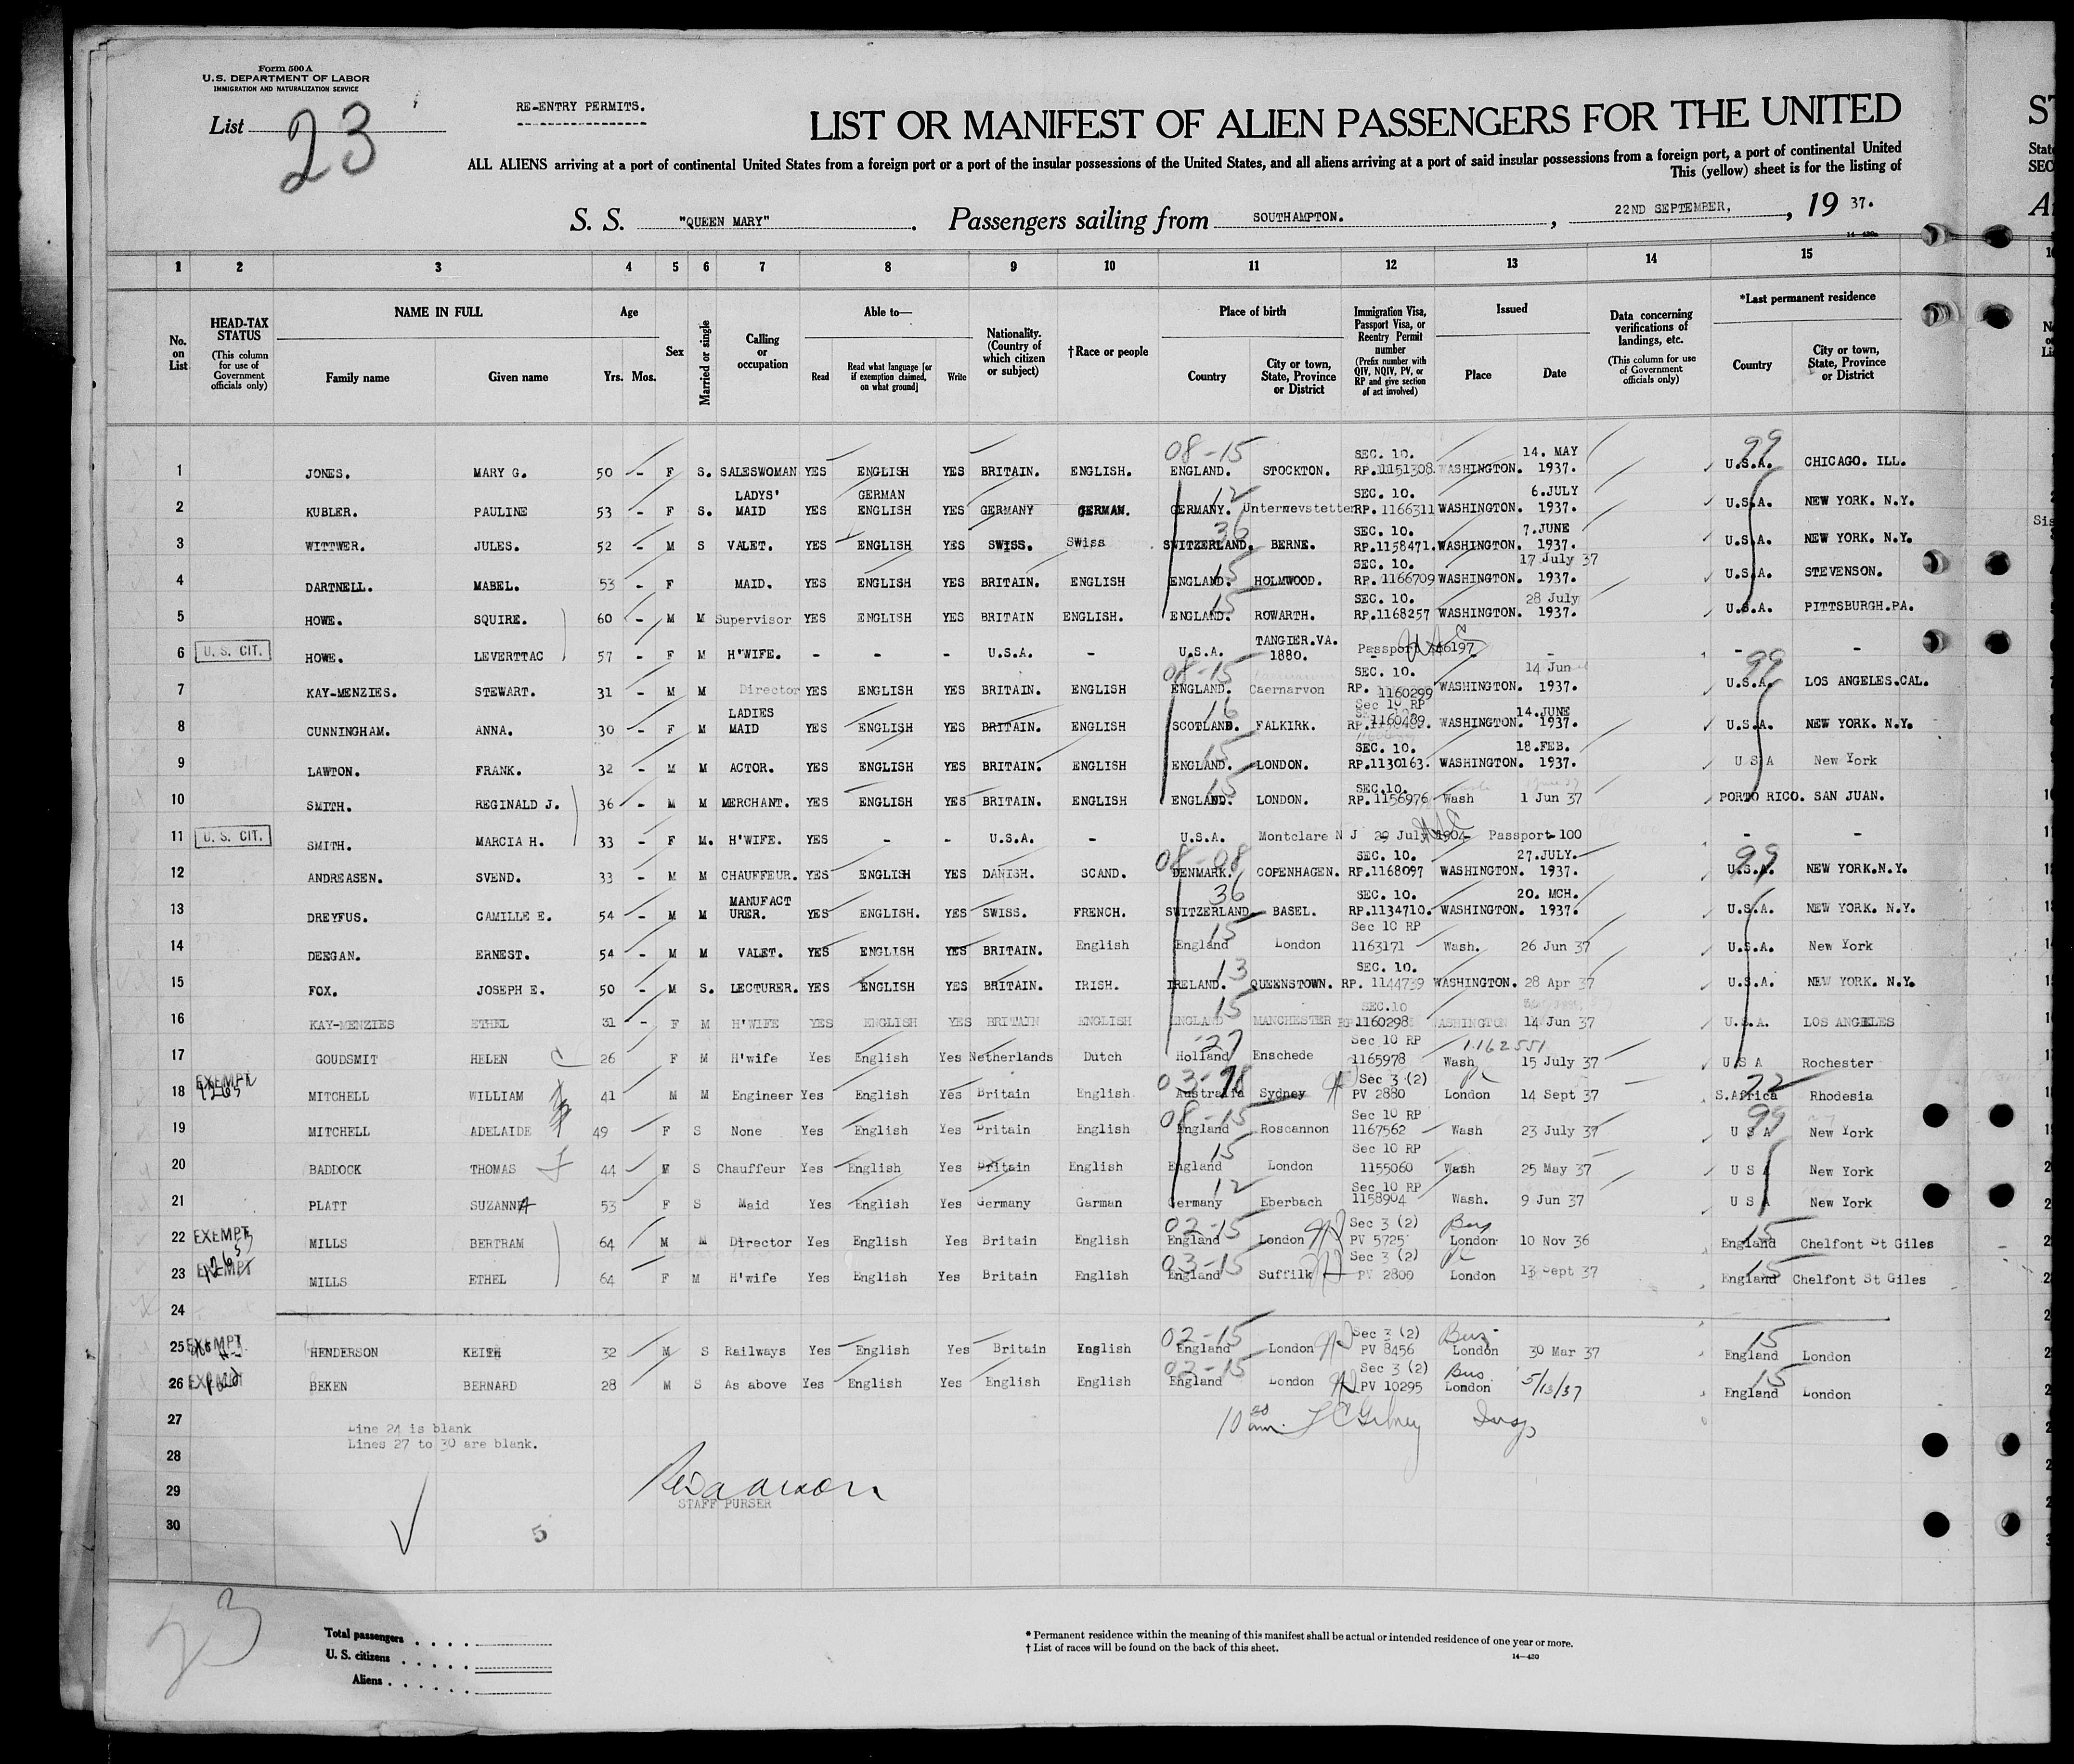 Form 500 A
U.S. DEPARTMENT OF LABOR
IMMIGRATION AND NATURALIZATION SERVICE
List 23
RE-ENTRY PERMITS.
LIST OR MANIFEST OF ALIEN PASSENGERS FOR THE UNITED
ALL ALIENS arriving at a port of continental United States from a foreign port or a port of the insular possessions of the United States, and all aliens arriving at a port of said insular possessions from a foreign port, a port of continental United
This (yellow) sheet is for the listing of
S. S. "QUEEN MARY". Passengers sailing from SOUTHAMPTON. , 22ND SEPTEMBER, , 19 37.
1 2 3 4 5 6 7 8 9 10 11 12 13 14 15
No. on List
HEAD-TAX STATUS (This column for use of Government officials only)
NAME IN FULL Family name Given name
Age Yrs. Mos.
Sex
Married or single
Calling or occupation
Able to— Read Read what language [or if exemption claimed, on what ground] Write
Nationality. (Country of which citizen or subject)
†Race or people
Place of birth Country City or town, State, Province or District
Immigration Visa, Passport Visa, or Reentry Permit number (Prefix number with QIV, NQIV, PV, or RP and give section of act involved)
Issued Place Date
Data concerning verifications of landings, etc. (This column for use of Government officials only)
*Last permanent residence Country City or town, State, Province or District
08-15 SEC. 10. 14. MAY 99
1 JONES. MARY G. 50 - F S. SALESWOMAN YES ENGLISH YES BRITAIN. ENGLISH. ENGLAND. STOCKTON. RP.1151308. WASHINGTON. 1937. U.S.A. CHICAGO. ILL.
LADYS' GERMAN 12 SEC. 10. 6.JULY
2 KUBLER. PAULINE 53 - F S. MAID YES ENGLISH YES GERMANY GERMAN. GERMANY. Unterwevstetten RP. 1166311 WASHINGTON. 1937. U.S.A. NEW YORK. N.Y.
36 SEC. 10. 7.JUNE
3 WITTWER. JULES. 52 - M S VALET. YES ENGLISH YES SWISS. Swiss SWITZERLAND. BERNE. RP.1158471. WASHINGTON. 1937. U.S.A. NEW YORK. N.Y.
15 SEC. 10. 17 July 37
4 DARTNELL. MABEL. 53 - F MAID. YES ENGLISH YES BRITAIN. ENGLISH ENGLAND. HOLMWOOD. RP. 1166709 WASHINGTON. 1937. U.S.A. STEVENSON.
15 SEC. 10. 28 July
5 HOWE. SQUIRE. 60 - M M Supervisor YES ENGLISH YES BRITAIN ENGLISH. ENGLAND. ROWARTH. RP.1168257 WASHINGTON. 1937. U.S.A. PITTSBURGH.PA.
TANGIER.VA.
6 U. S. CIT. HOWE. LEVERTTAC 57 - F M H'WIFE. - - - U.S.A. - U.S.A. 1880. Passport 446197 - - - -
08-15 SEC. 10. 14 Jun 99
7 KAY-MENZIES. STEWART. 31 - M M Director YES ENGLISH YES BRITAIN. ENGLISH ENGLAND. Caernarvon RP. 1160299 WASHINGTON. 1937. U.S.A. LOS ANGELES.CAL.
LADIES 16 Sec 10 RP 14.JUNE
8 CUNNINGHAM. ANNA. 30 - F M MAID YES ENGLISH YES BRITAIN. ENGLISH SCOTLAND. FALKIRK. RP.1160489. WASHINGTON. 1937. U.S.A. NEW YORK. N.Y.
15 SEC. 10. 18.FEB.
9 LAWTON. FRANK. 32 - M M ACTOR. YES ENGLISH YES BRITAIN. ENGLISH ENGLAND. LONDON. RP.1130163. WASHINGTON. 1937. U S A New York
15 SEC.10.
10 SMITH. REGINALD J. 36 - M M MERCHANT. YES ENGLISH YES BRITAIN. ENGLISH ENGLAND. LONDON. RP. 1156976 Wash 1 Jun 37 PORTO RICO. SAN JUAN.
11 U. S. CIT. SMITH. MARCIA H. 33 - F M. H'WIFE. YES - - U.S.A. - U.S.A. Montclare N J 29 July 1904 Passport-100 - -
08-08 SEC. 10. 27.JULY. 99
12 ANDREASEN. SVEND. 33 - M M CHAUFFEUR. YES ENGLISH YES DANISH. SCAND. DENMARK. COPENHAGEN. RP.1168097 WASHINGTON. 1937. U.S.A. NEW YORK.N.Y.
MANUFACT 36 SEC. 10. 20. MCH.
13 DREYFUS. CAMILLE E. 54 - M M URER. YES ENGLISH. YES SWISS. FRENCH. SWITZERLAND BASEL. RP.1134710. WASHINGTON. 1937. U.S.A. NEW YORK. N.Y.
15 Sec 10 RP
14 DEEGAN. ERNEST. 54 - M M VALET. YES ENGLISH YES BRITAIN. English England London 1163171 Wash. 26 Jun 37 U.S.A. New York
13 SEC. 10.
15 FOX. JOSEPH E. 50 - M S. LECTURER. YES ENGLISH YES BRITAIN. IRISH. IRELAND. QUEENSTOWN. RP. 1144739 WASHINGTON. 28 Apr 37 U.S.A. NEW YORK. N.Y.
15 SEC.10
16 KAY-MENZIES ETHEL 31 - F M H'WIFE YES ENGLISH YES BRITAIN ENGLISH ENGLAND MANCHESTER RP 1160298 WASHINGTON 14 Jun 37 U.S.A. LOS ANGELES
27 Sec 10 RP 1162551
17 GOUDSMIT HELEN 26 F M H'wife Yes English Yes Netherlands Dutch Holland Enschede 1165978 Wash 15 July 37 U S A Rochester
EXEMPT 03-78 Sec 3 (2) 72
18 MITCHELL WILLIAM 41 M M Engineer Yes English Yes Britain English Australia Sydney PV 2880 London 14 Sept 37 S.Africa Rhodesia
08-15 Sec 10 RP 99
19 MITCHELL ADELAIDE 49 F S None Yes English Yes Britain English England Roscannon 1167562 Wash 23 July 37 U S A New York
15 Sec 10 RP
20 BADDOCK THOMAS 44 M S Chauffeur Yes English Yes Britain English England London 1155060 Wash 25 May 37 U S A New York
12 Sec 10 RP
21 PLATT SUZANNA 53 F S Maid Yes English Yes Germany Garman Germany Eberbach 1158904 Wash. 9 Jun 37 U S A New York
EXEMPT 02-15 Sec 3 (2) 15
22 MILLS BERTRAM 64 M M Director Yes English Yes Britain English England London PV 5725 London 10 Nov 36 England Chelfont St Giles
EXEMPT 03-15 Sec 3 (2) 15
23 MILLS ETHEL 64 F M H'wife Yes English Yes Britain English England Suffilk PV 2800 London 13 Sept 37 England Chelfont St Giles
24
EXEMPT 02-15 Sec 3 (2) Bus 15
25 HENDERSON KEITH 32 M S Railways Yes English Yes Britain English England London PV 8456 London 30 Mar 37 England London
EXEMPT 02-15 Sec 3 (2) Bus 15
26 BEKEN BERNARD 28 M S As above Yes English Yes English English England London PV 10295 London 5/13/37 England London
27
Line 24 is blank
Lines 27 to 30 are blank.
28
29
STAFF PURSER
30
5
23
Total passengers
U. S. citizens
Aliens
* Permanent residence within the meaning of this manifest shall be actual or intended residence of one year or more.
† List of races will be found on the back of this sheet.
14—420